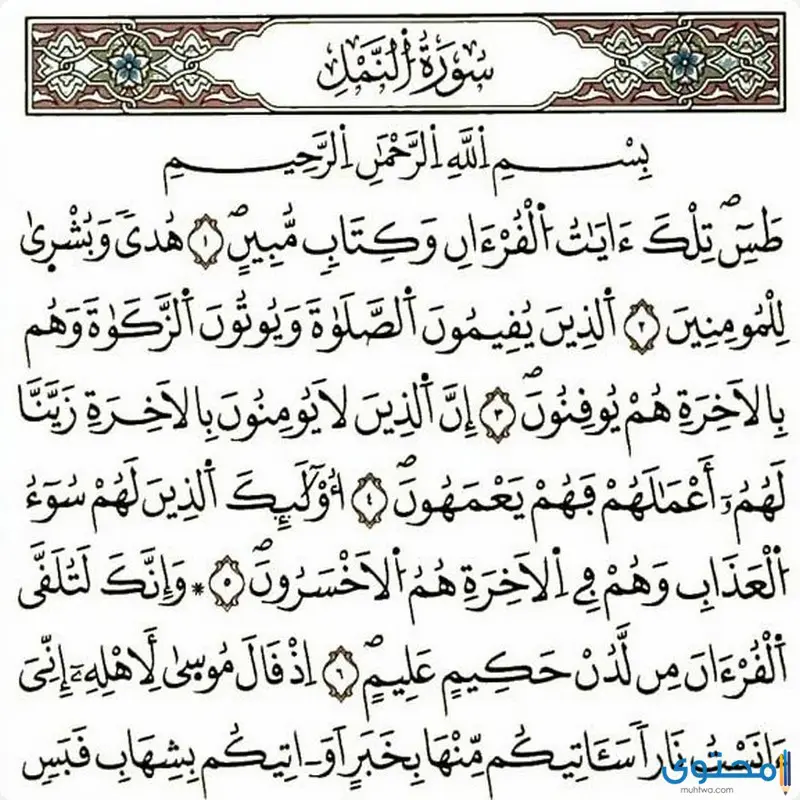 سُورَةُ اُ۬لنَّمْلِ
بِسْمِ اِ۬للَّهِ اِ۬لرَّحْمَٰنِ اِ۬لرَّحِيمِ
طَسِٓۖ تِلْكَ ءَايَٰتُ اُ۬لْقُرْءَانِ وَكِتَابٖ مُّبِينٍۖ ١ هُديٗ وَبُشْر۪ىٰ
لِلْمُومِنِينَ ٢ اَ۬لذِينَ يُقِيمُونَ اَ۬لصَّلَوٰةَ وَيُوتُونَ اَ۬لزَّكَوٰةَ وَهُم
بِالَاخِرَةِ هُمْ يُوقِنُونَۖ ٣ إِنَّ اَ۬لذِينَ لَا يُومِنُونَ بِالَاخِرَةِ زَيَّنَّا
لَهُمُۥٓ أَعْمَٰلَهُمْ فَهُمْ يَعْمَهُونَۖ ٤ أُوْلَٰٓئِكَ اَ۬لذِينَ لَهُمْ سُوٓءُ
اُ۬لْعَذَابِ وَهُمْ فِے اِ۬لَاخِرَةِ هُمُ اُ۬لَاخْسَرُونَۖ ٥ * وَإِنَّكَ لَتُلَقَّى
اَ۬لْقُرْءَانَ مِن لَّدُنْ حَكِيمٍ عَلِيمٍۖ ٦ اِذْ قَالَ مُوس۪ىٰ لِأَهْلِهِۦٓ إِنِّيَ
ءَانَسْتُ نَاراٗ سَـَٔاتِيكُم مِّنْهَا بِخَبَرٍ اَوَ اٰتِيكُم بِشِهَابِ قَبَسٖ
محتوى
muhtwa.com